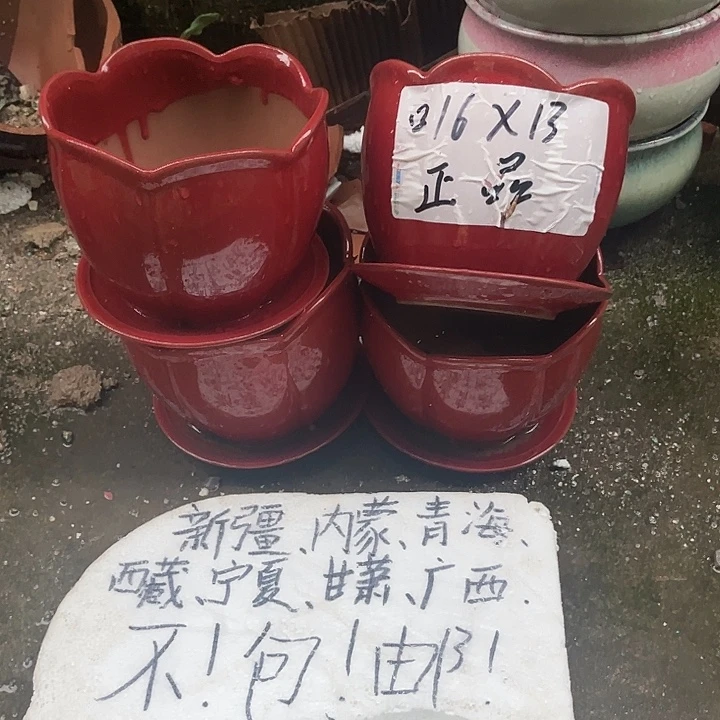 口16X13
正品
新疆、内蒙、青海、
西藏、宁夏、甘肃、广西.
不!包!邮!